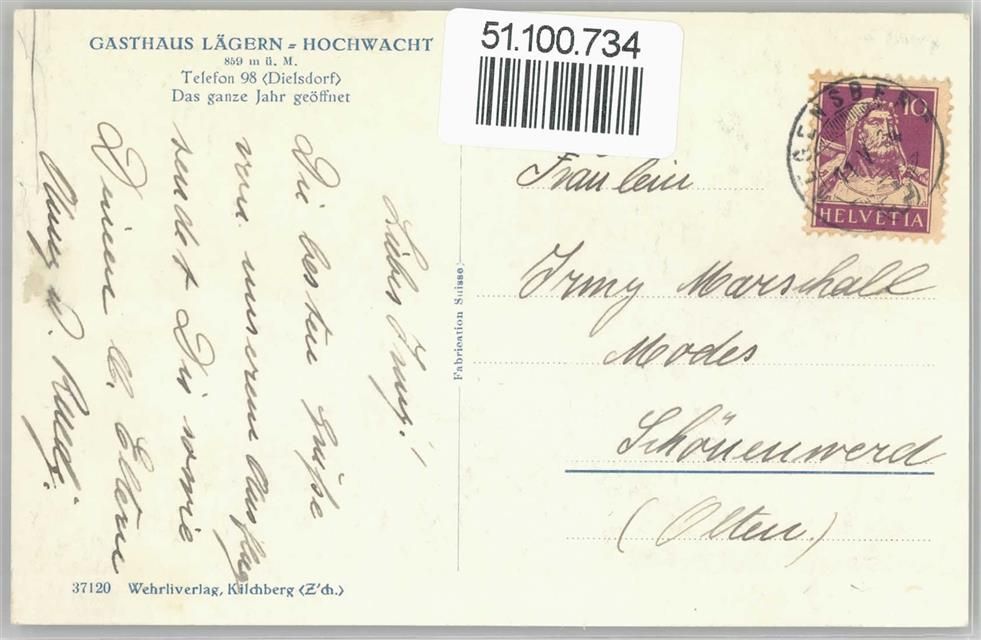 GASTHAUS LÄGERN = HOCHWACHT
859 m ü. M.
Telefon 98 (Dielsdorf)
Das ganze Jahr geöffnet
51.100.734
10
HELVETIA
Liebes Irmy!
Die besten Grüße
von unserem Ausflug
sendet Dir sowie
Deinen lb. Eltern
Fabrication Suisse
Fräulein
Irmy Marschall
Modes
Schönenwerd
(Olten.)
37120 Wehrliverlag, Kilchberg (Z'ch.)